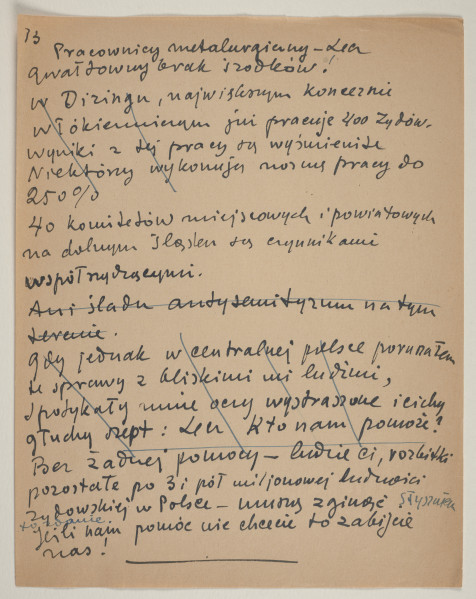 13
Pracownicy metalurgiczny – Lecz
gwałtowny brak środków!
w Dizingu, największym koncernie
włókienniczym już pracuje 400 Żydów.
wyniki z tej pracy są wyśmienite
Niektórzy wykonują normę pracy do
250%
40 komitetów miejscowych i powiatowych
na dolnym śląsku są czynnikami
współrządzącymi.
Ani śladu antysemityzmu na tym
terenie.
gdy jednak w centralnej polsce poruszałem
te sprawy z bliskimi mi ludźmi,
spotykały mnie oczy wystraszone i cichy
głuchy szept: Lecz kto nam pomoże?
Bez żadnej pomocy – ludzie ci, rozbitki
pozostałe po 3 i pół miljonowej ludności
żydowskiej w Polsce – muszą zginąć słyszałem
to zdanie.
jeśli nam pomóc nie chcecie to zabijcie
nas!